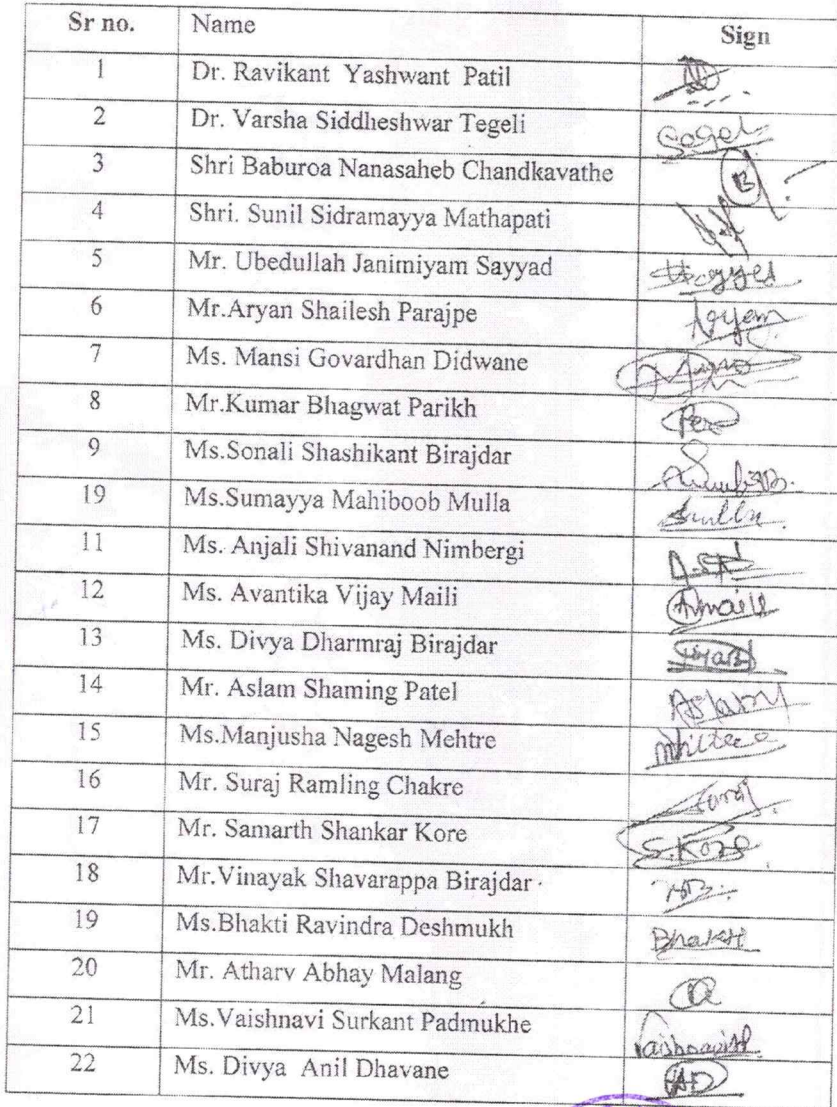 Sr no. Name Sign
1 Dr. Ravikant Yashwant Patil
2 Dr. Varsha Siddheshwar Tegeli
3 Shri Baburoa Nanasaheb Chandkavathe
4 Shri. Sunil Sidramayya Mathapati
5 Mr. Ubedullah Janimiyam Sayyad
6 Mr.Aryan Shailesh Parajpe
7 Ms. Mansi Govardhan Didwane
8 Mr.Kumar Bhagwat Parikh
9 Ms.Sonali Shashikant Birajdar
19 Ms.Sumayya Mahiboob Mulla
11 Ms. Anjali Shivanand Nimbergi
12 Ms. Avantika Vijay Maili
13 Ms. Divya Dharmraj Birajdar
14 Mr. Aslam Shaming Patel
15 Ms.Manjusha Nagesh Mehtre
16 Mr. Suraj Ramling Chakre Suraj
17 Mr. Samarth Shankar Kore S.Kore
18 Mr.Vinayak Shavarappa Birajdar
19 Ms.Bhakti Ravindra Deshmukh Bhakti
20 Mr. Atharv Abhay Malang
21 Ms.Vaishnavi Surkant Padmukhe
22 Ms. Divya Anil Dhavane